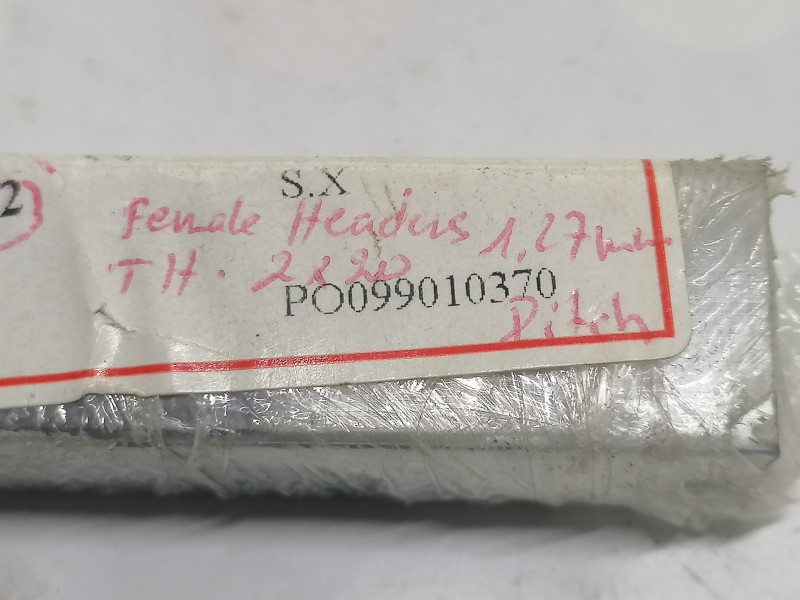 2
S.X
Female Headers 1,27mm
TH. 2x20
PO099010370
Pitch